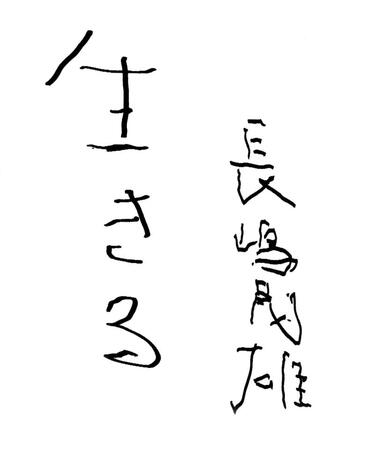 生きる
長嶋茂雄